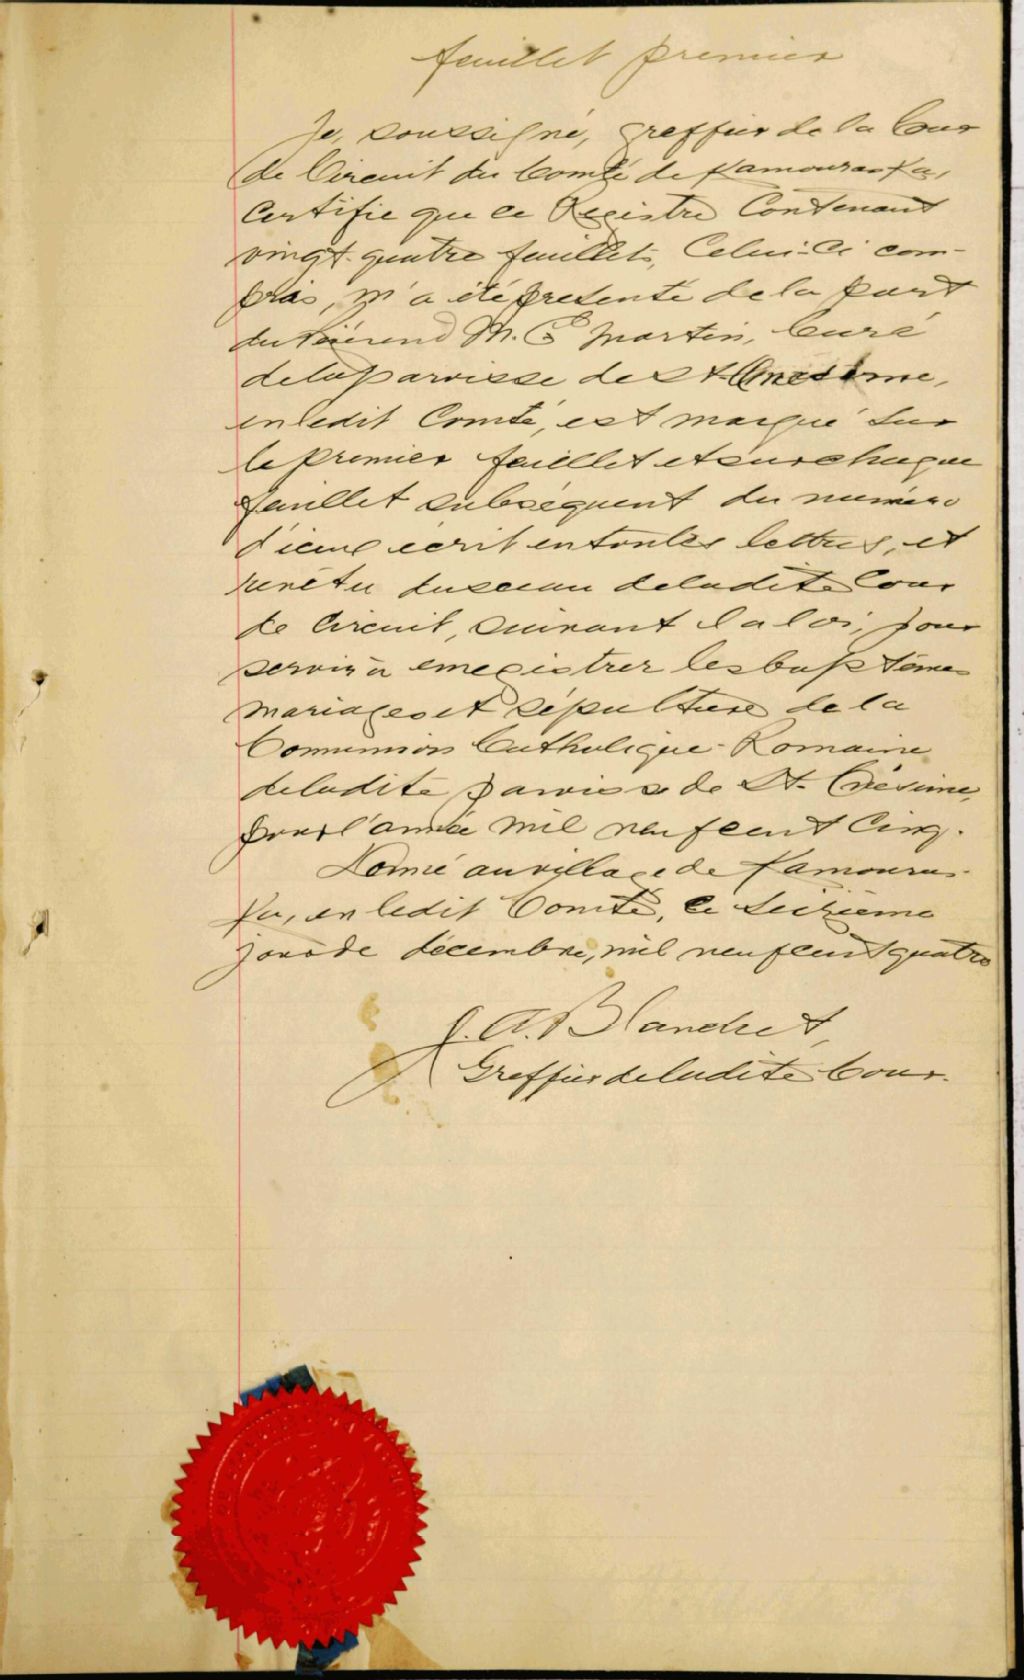 feuillet premier
Je, soussigné, greffier de la Cour
de Circuit du Comté de Kamouraska,
Certifie que ce Registre Contenant
vingt-quatre feuillets, Celui-Ci com-
pris, m'a été présenté de la part
du Révérend M. E Martin, Curé
de la paroisse de St-Onésime,
en ledit Comté, est marqué sur
le premier feuillet et sur chaque
feuillet subséquent du numéro
d'icelui écrit en toutes lettres, et
revêtu du sceau de ladite Cour
de Circuit, suivant la loi, pour
servir à enregistrer les baptêmes
mariages et sépulture de la
Communion Catholique-Romaine
de ladite paroisse de St-Onésime,
pour l'année mil neuf cent Cinq.
Donné au village de Kamouras-
ka, en ledit Comté, ce seizième
jour de décembre, mil neuf cent quatre
J. A. Blanchet,
Greffier de ladite Cour.